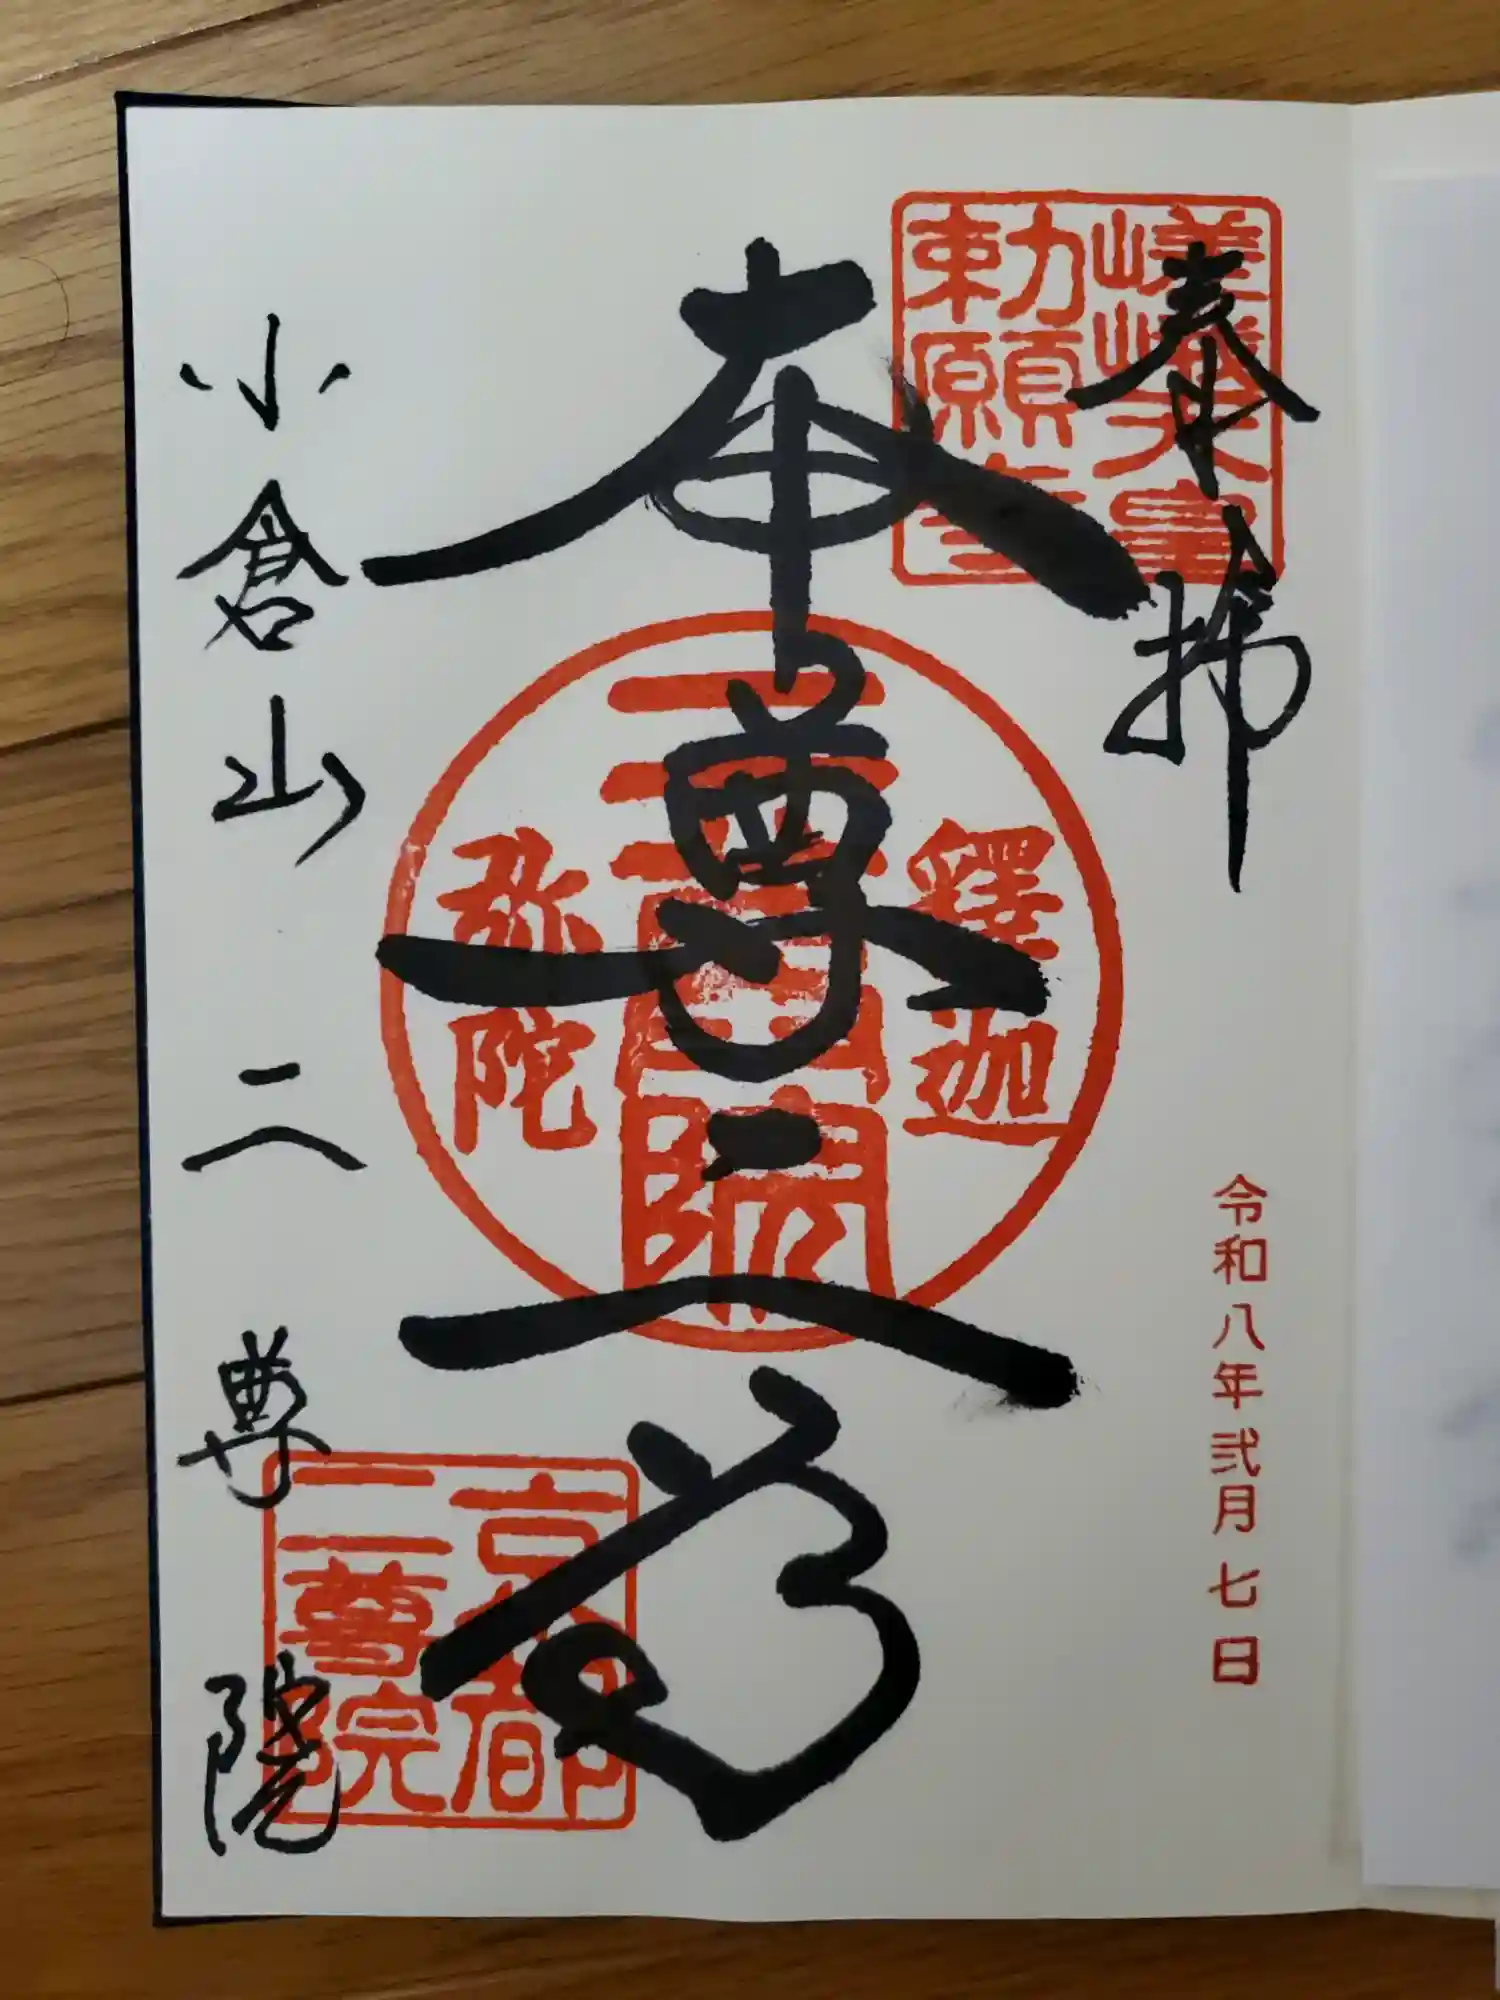 奉拝
嵯峨天皇
勅願寺
令和八年弐月七日
本尊二尊
釋迦
二尊院
弥陀
小倉山
二尊院
京都
二尊院